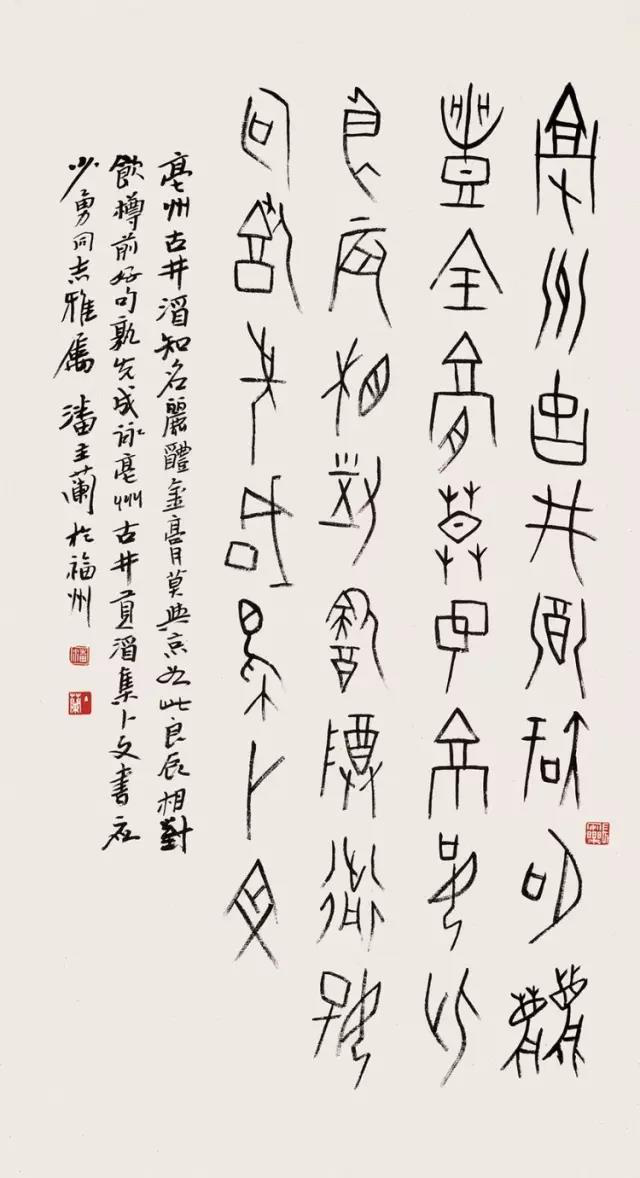 亳州古井酒知名麗
醴金膏莫與京如此
良辰相對飲樽前好
句孰先成集卜文
亳州古井酒知名麗醴金膏莫與京如此良辰相對
飲樽前好句孰先成詠亳州古井貢酒集卜文書应
少勇同志雅屬 潘主蘭於福州